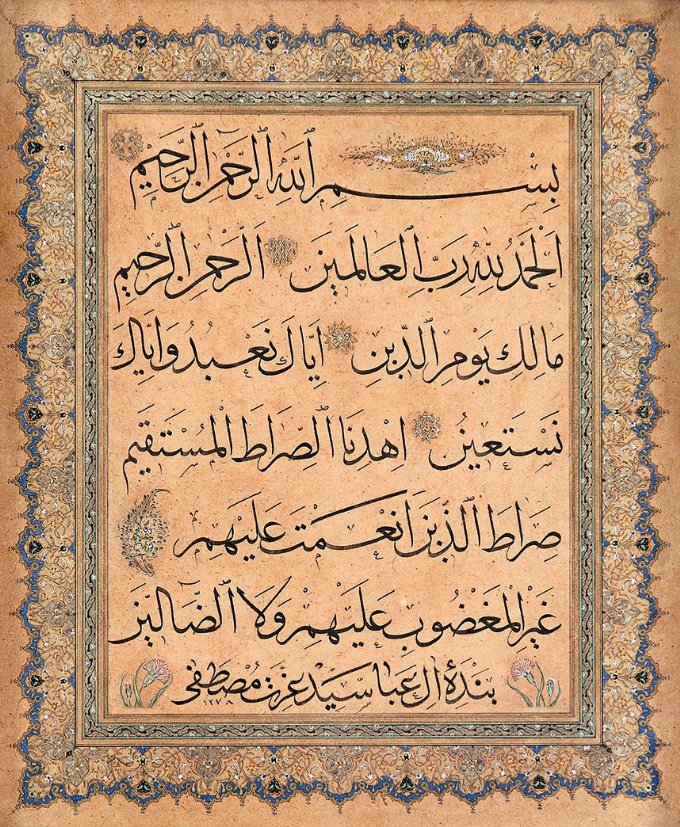 بِسْمِ اللهِ الرَّحْمٰنِ الرَّحِيْمِ
اَلْحَمْدُ لِلّٰهِ رَبِّ الْعَالَمِينَ اَلرَّحْمٰنِ الرَّحِيمِ
مَالِكِ يَوْمِ الدِّينِ اِيَّاكَ نَعْبُدُ وَاِيَّاكَ
نَسْتَعِينُ اِهْدِنَا الصِّرَاطَ الْمُسْتَقِيمَ
صِرَاطَ الَّذِينَ اَنْعَمْتَ عَلَيْهِمْ
غَيْرِ الْمَغْضُوبِ عَلَيْهِمْ وَلَا الضَّالِّينَ
بندهٔ آل عبا سيد عزت مصطفى ١٢٧٨